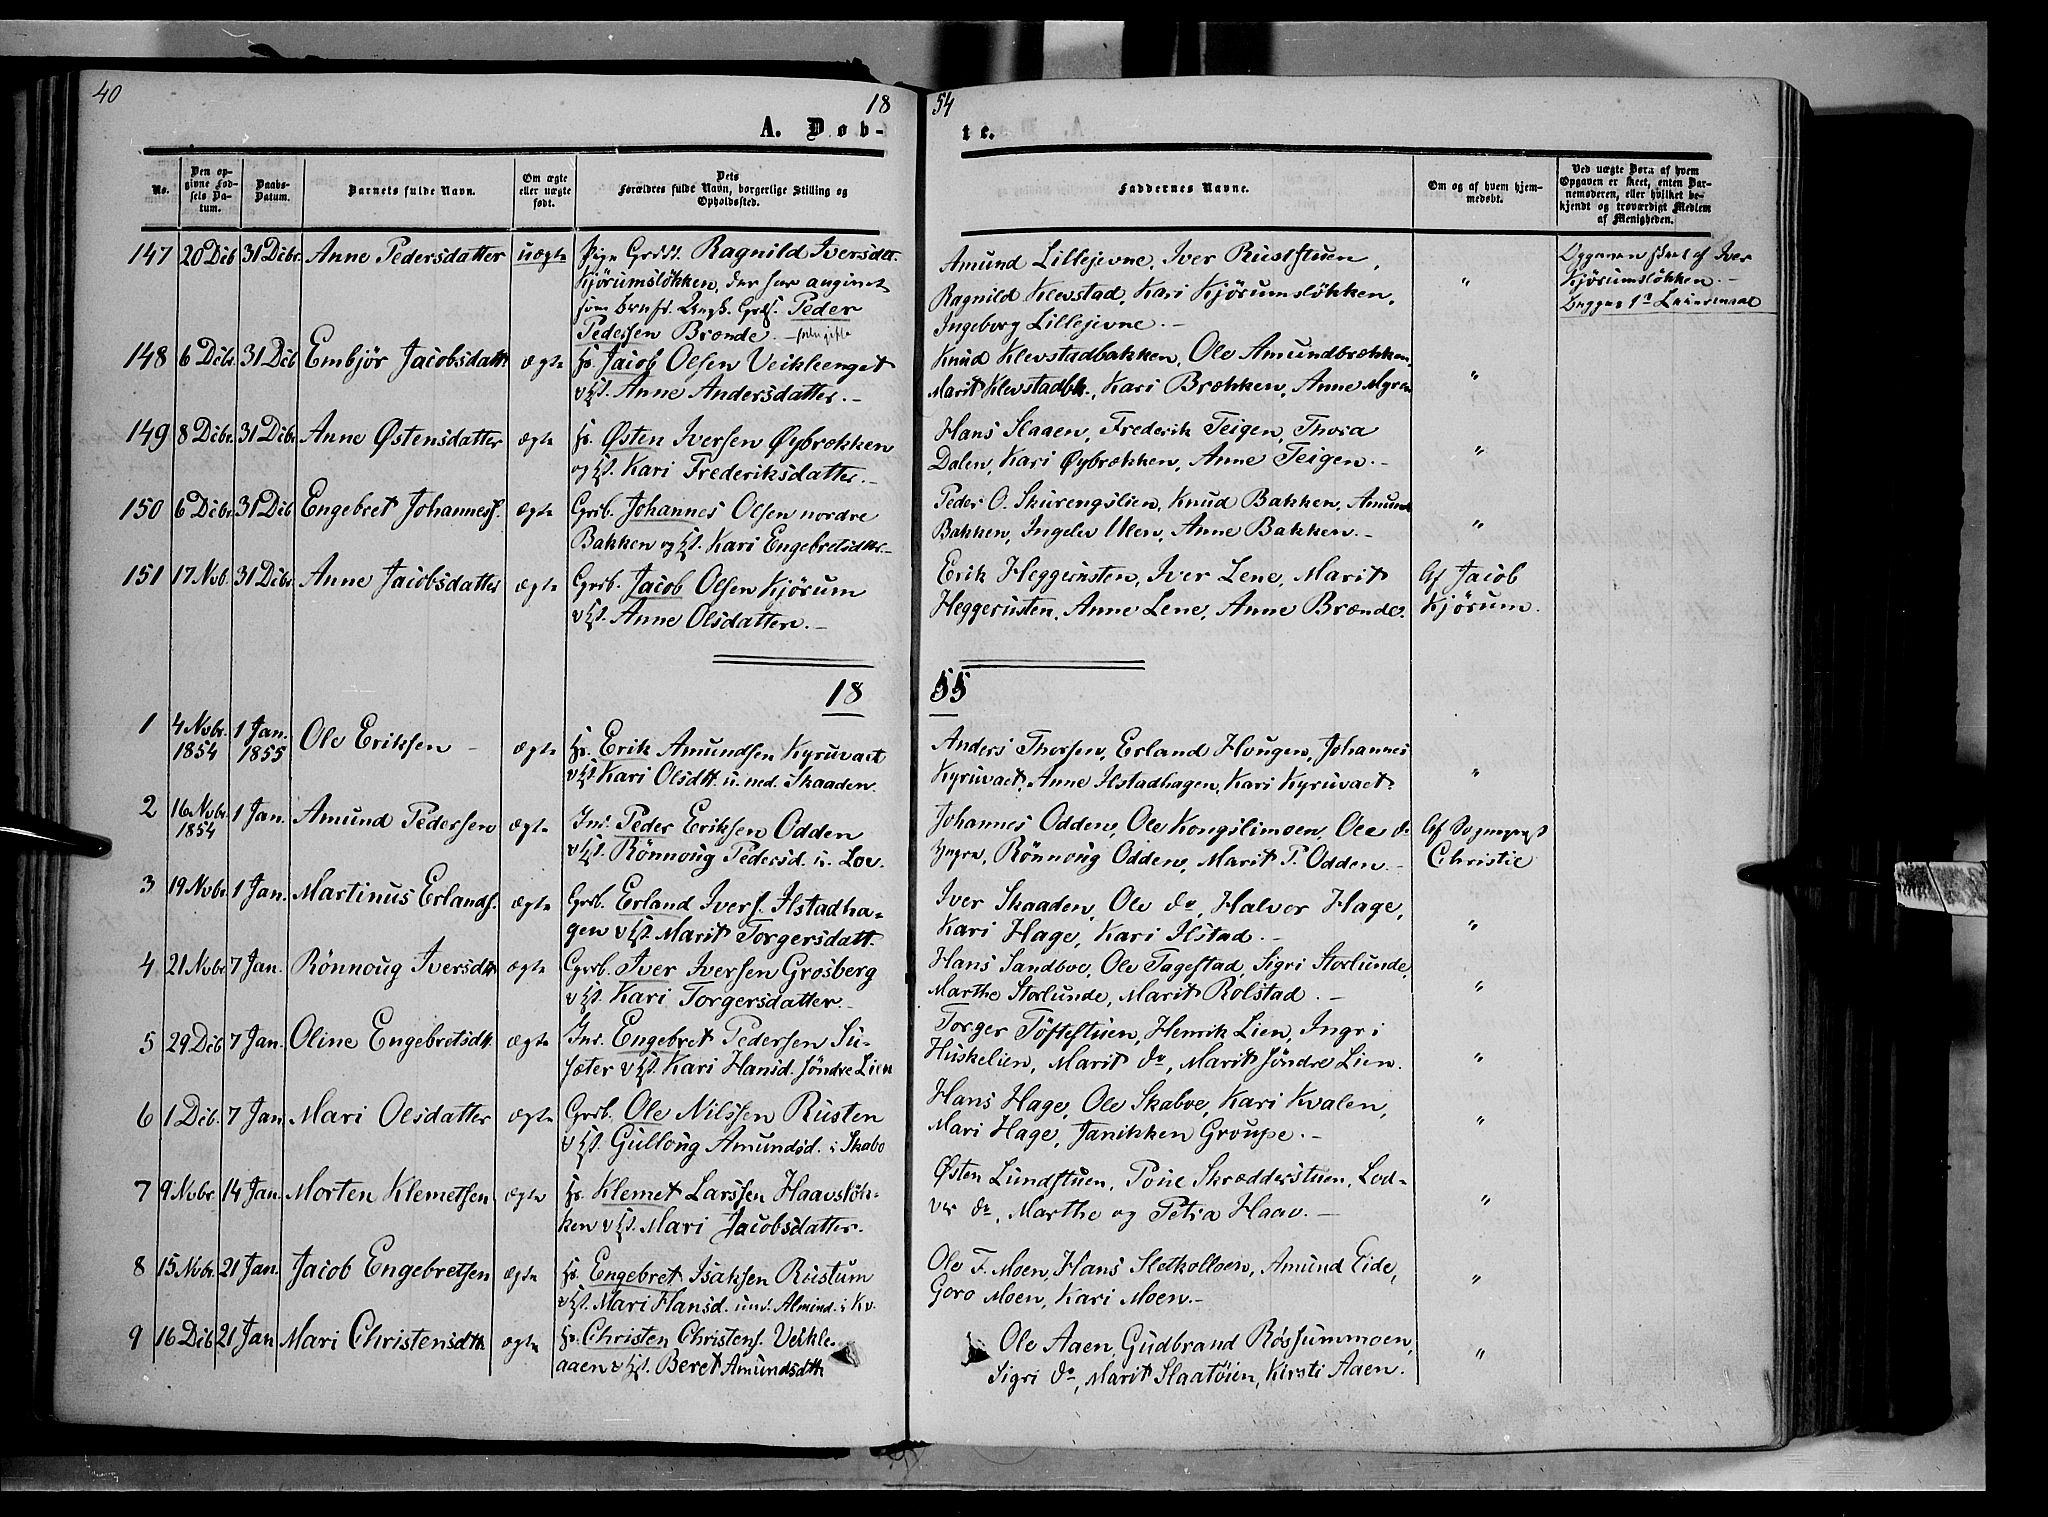 40
18
54
A. Døb-
te.
No.
Den op-
givne Fød-
sels Da-
tum.
Daabs-
Datum.
Barnets fulde Navn.
Om ægte
eller uægte
født.
Dets
Forældres fulde Navn, borgerlige Stilling og
Opholdssted.
Faddernes Navne.
Om og af hvem hjem-
medøbt.
Ved uægte Børn af hvem
Opgaven er skeet, enten Bar-
nemoderen, eller hvilket be-
kjendt og troværdigt Medlem
af Menigheden.
147 20 Dcb 31 Dcbr. Anne Pedersdatter uægte Pige Ragnild Iversdttr.
Kjørumsløkken, der har angivet
som Barnef. Peder
Pedersen Brænde.
Amund Lillejevne, Iver Ruststuen,
Ragnild Klevstad, Kari Kjørumsløkken,
Ingeborg Lillejevne. -
"
Opgaven skeet af Iver
Kjørumsløkken. -
148 6 Dcbr. 31 Dcb Embjør Jacobsdatt. ægte Hs. Jacob Olsen Veikleenget
Anne Andersdatter. -
Knud Klevstadbakken, Ole Amundbrækken,
Marit Klevstadbk., Kari Brækken, Anne Myren
"
149 8 Dcbr. 31 Dcbr Anne Østensdatter ægte Hs. Østen Iversen Øybrækken
og Kari Frederiksdatter. -
Hans Slaaen, Frederik Teigen, Thora
Dalen, Kari Øybrækken, Anne Teigen. -
"
150 6 Dcbr. 31 Dcb Engebret Johanness. ægte Grb. Johannes Olsen nordre
Bakken og Kari Engebretsdttr. -
Peder O. Skurengslien, Knud Bakken, Amund
Bakken, Ingelev Ulen, Anne Bakken. -
"
151 17 Nvb. 31 Dcbr. Anne Jacobsdatter ægte Grb. Jacob Olsen Kjørum
Anne Olsdatter. -
Erik Heggerusten, Iver Lene, Marit
Heggerusten, Anne Lene, Anne Brænde.
Af Jacob
Kjørum.
18 55
1 4 Nvbr. 1854 1 Jan. 1855 Ole Eriksen - ægte Hs. Erik Amundsen Kyruvaet
Kari Olsdtt. u. ned. Skaaden.
Anders Thorsen, Erland Hougen, Johannes
Kyruvaet, Anne Ilstadhagen, Kari Kyruvaet.
"
2 16 Nvbr. 1854 1 Jan. Amund Pedersen ægte Ins. Peder Eriksen Odden
Rønnoug Pedersd. u. Loe.
Johannes Odden, Ole Kongslimoen, Ole do
Yngre, Rønnoug Odden, Marit P. Odden -
Af Sognepræst
Christie
3 19 Nvbr. 1 Jan. Martinus Erlands. ægte Grb. Erland Ivers. Ilstadha-
gen Marit Torgersdatt.
Iver Skaaden, Ole do, Halvor Hage,
Kari Hage, Kari Ilstad. -
"
4 21 Nvbr. 7 Jan. Rønnoug Iversdtt. ægte Grb. Iver Iversen Grosberg
Kari Torgersdatter. -
Hans Sandboe, Ole Tagestad, Sigri Storlunde,
Marthe Storlunde, Marit Rolstad. -
"
5 29 Dcb 7 Jan. Oline Engebretsdtt. ægte Ins. Engebret Pedersen Su-
sæter Kari Hansd. søndre Lien
Torger Tøftestuen, Henrik Lien, Ingri
Huskelien, Marit do, Marit søndre Lien.
"
6 1 Dcb. 7 Jan. Mari Olsdatter ægte Grb. Ole Nilssen Rusten
Gulloug Amundsd. i Skabo
Hans Hage, Ole Skaboe, Kari Kvalen,
Mari Hage, Janikken Groupe. -
"
7 9 Nvbr. 14 Jan. Morten Klemetsen ægte Hs. Klemet Larssen Haavsløk-
ken Mari Jacobsdatter.
Østen Lundstuen, Poue Skrædderstuen, Lod-
ver do, Marthe og Petra Haav. -
"
8 15 Nvbr. 21 Jan. Jacob Engebretsen ægte Hs. Engebret Isaksen Rustum
Mari Hansd. und. Almind. i Kv.
Ole F. Moen, Hans Sletkolloen, Amund Eide,
Goro Moen, Kari Moen. -
"
9 16 Dcb 21 Jan Mari Christensdtt. ægte Hs. Christen Christens. Veikle-
aaen Beret Amundsdtt.
Ole Aaen, Gudbrand Røssummoen,
Sigri do, Marit Slaatøien, Kirsti Aaen.
"